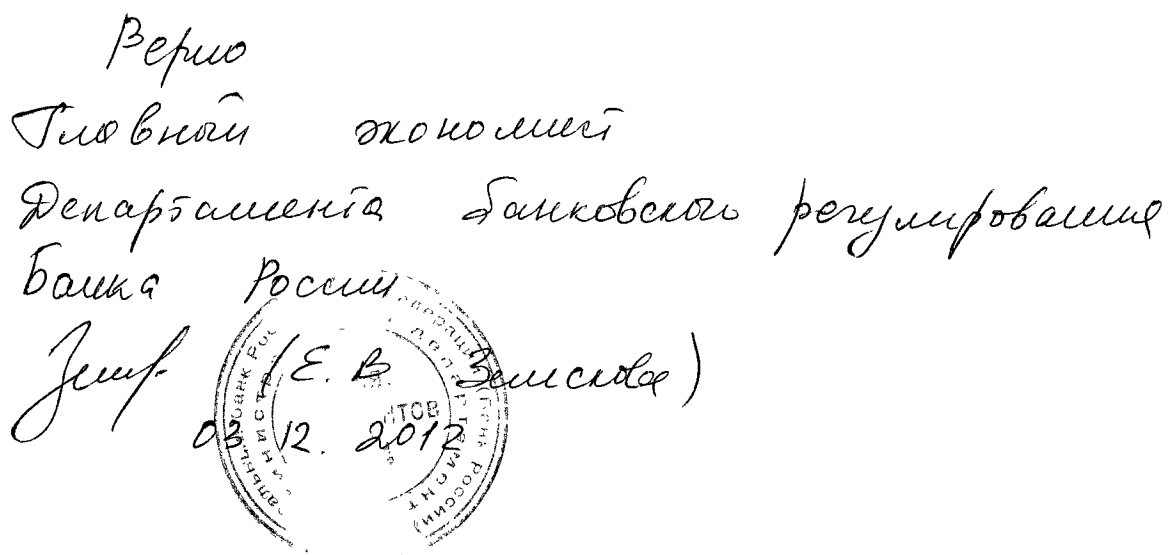 Верно
Главный экономист
Департамента банковского регулирования
Банка России
(Е. В Земскова)
03.12.2012